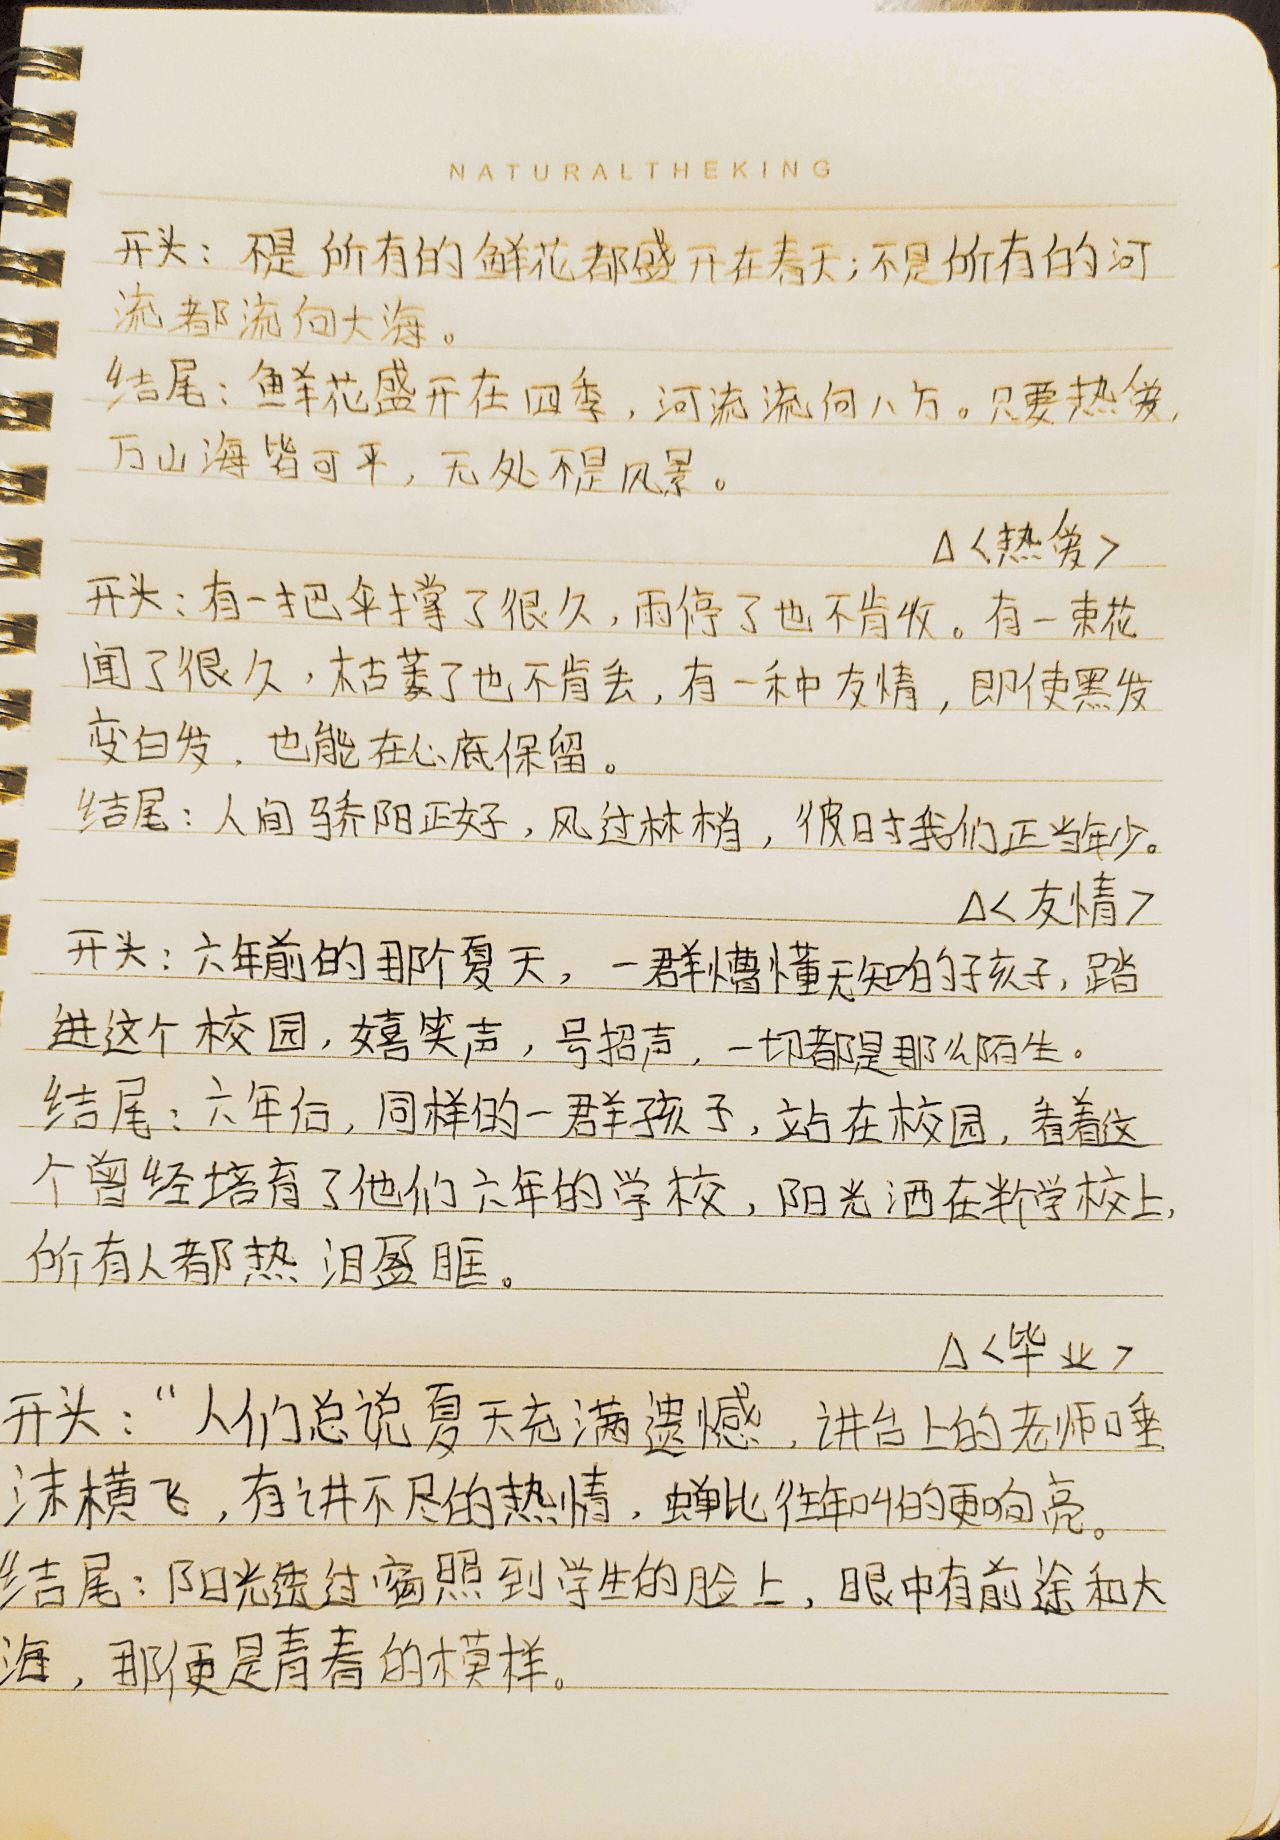 NATURALTHEKING
开头：不是所有的鲜花都盛开在春天；不是所有的河
流都流向大海。
结尾：鲜花盛开在四季，河流流向八方。只要热爱，
万山海皆可平，无处不是风景。
△<热爱>
开头：有一把伞撑了很久，雨停了也不肯收。有一束花
闻了很久，枯萎了也不肯丢，有一种友情，即使黑发
变白发，也能在心底保留。
结尾：人间骄阳正好，风过林梢，彼时我们正当年少。
△<友情>
开头：六年前的那个夏天，一群懵懂无知的孩子，踏
进这个校园，嬉笑声，号招声，一切都是那么陌生。
结尾：六年后，同样的一群孩子，站在校园，看着这
个曾经培育了他们六年的学校，阳光洒在半个学校上，
所有人都热泪盈眶。
△<毕业>
开头：“人们总说夏天充满遗憾，讲台上的老师唾
沫横飞，有讲不尽的热情，蝉比往年叫的更响亮。
结尾：阳光透过窗照到学生的脸上，眼中有前途和大
海，那便是青春的模样。